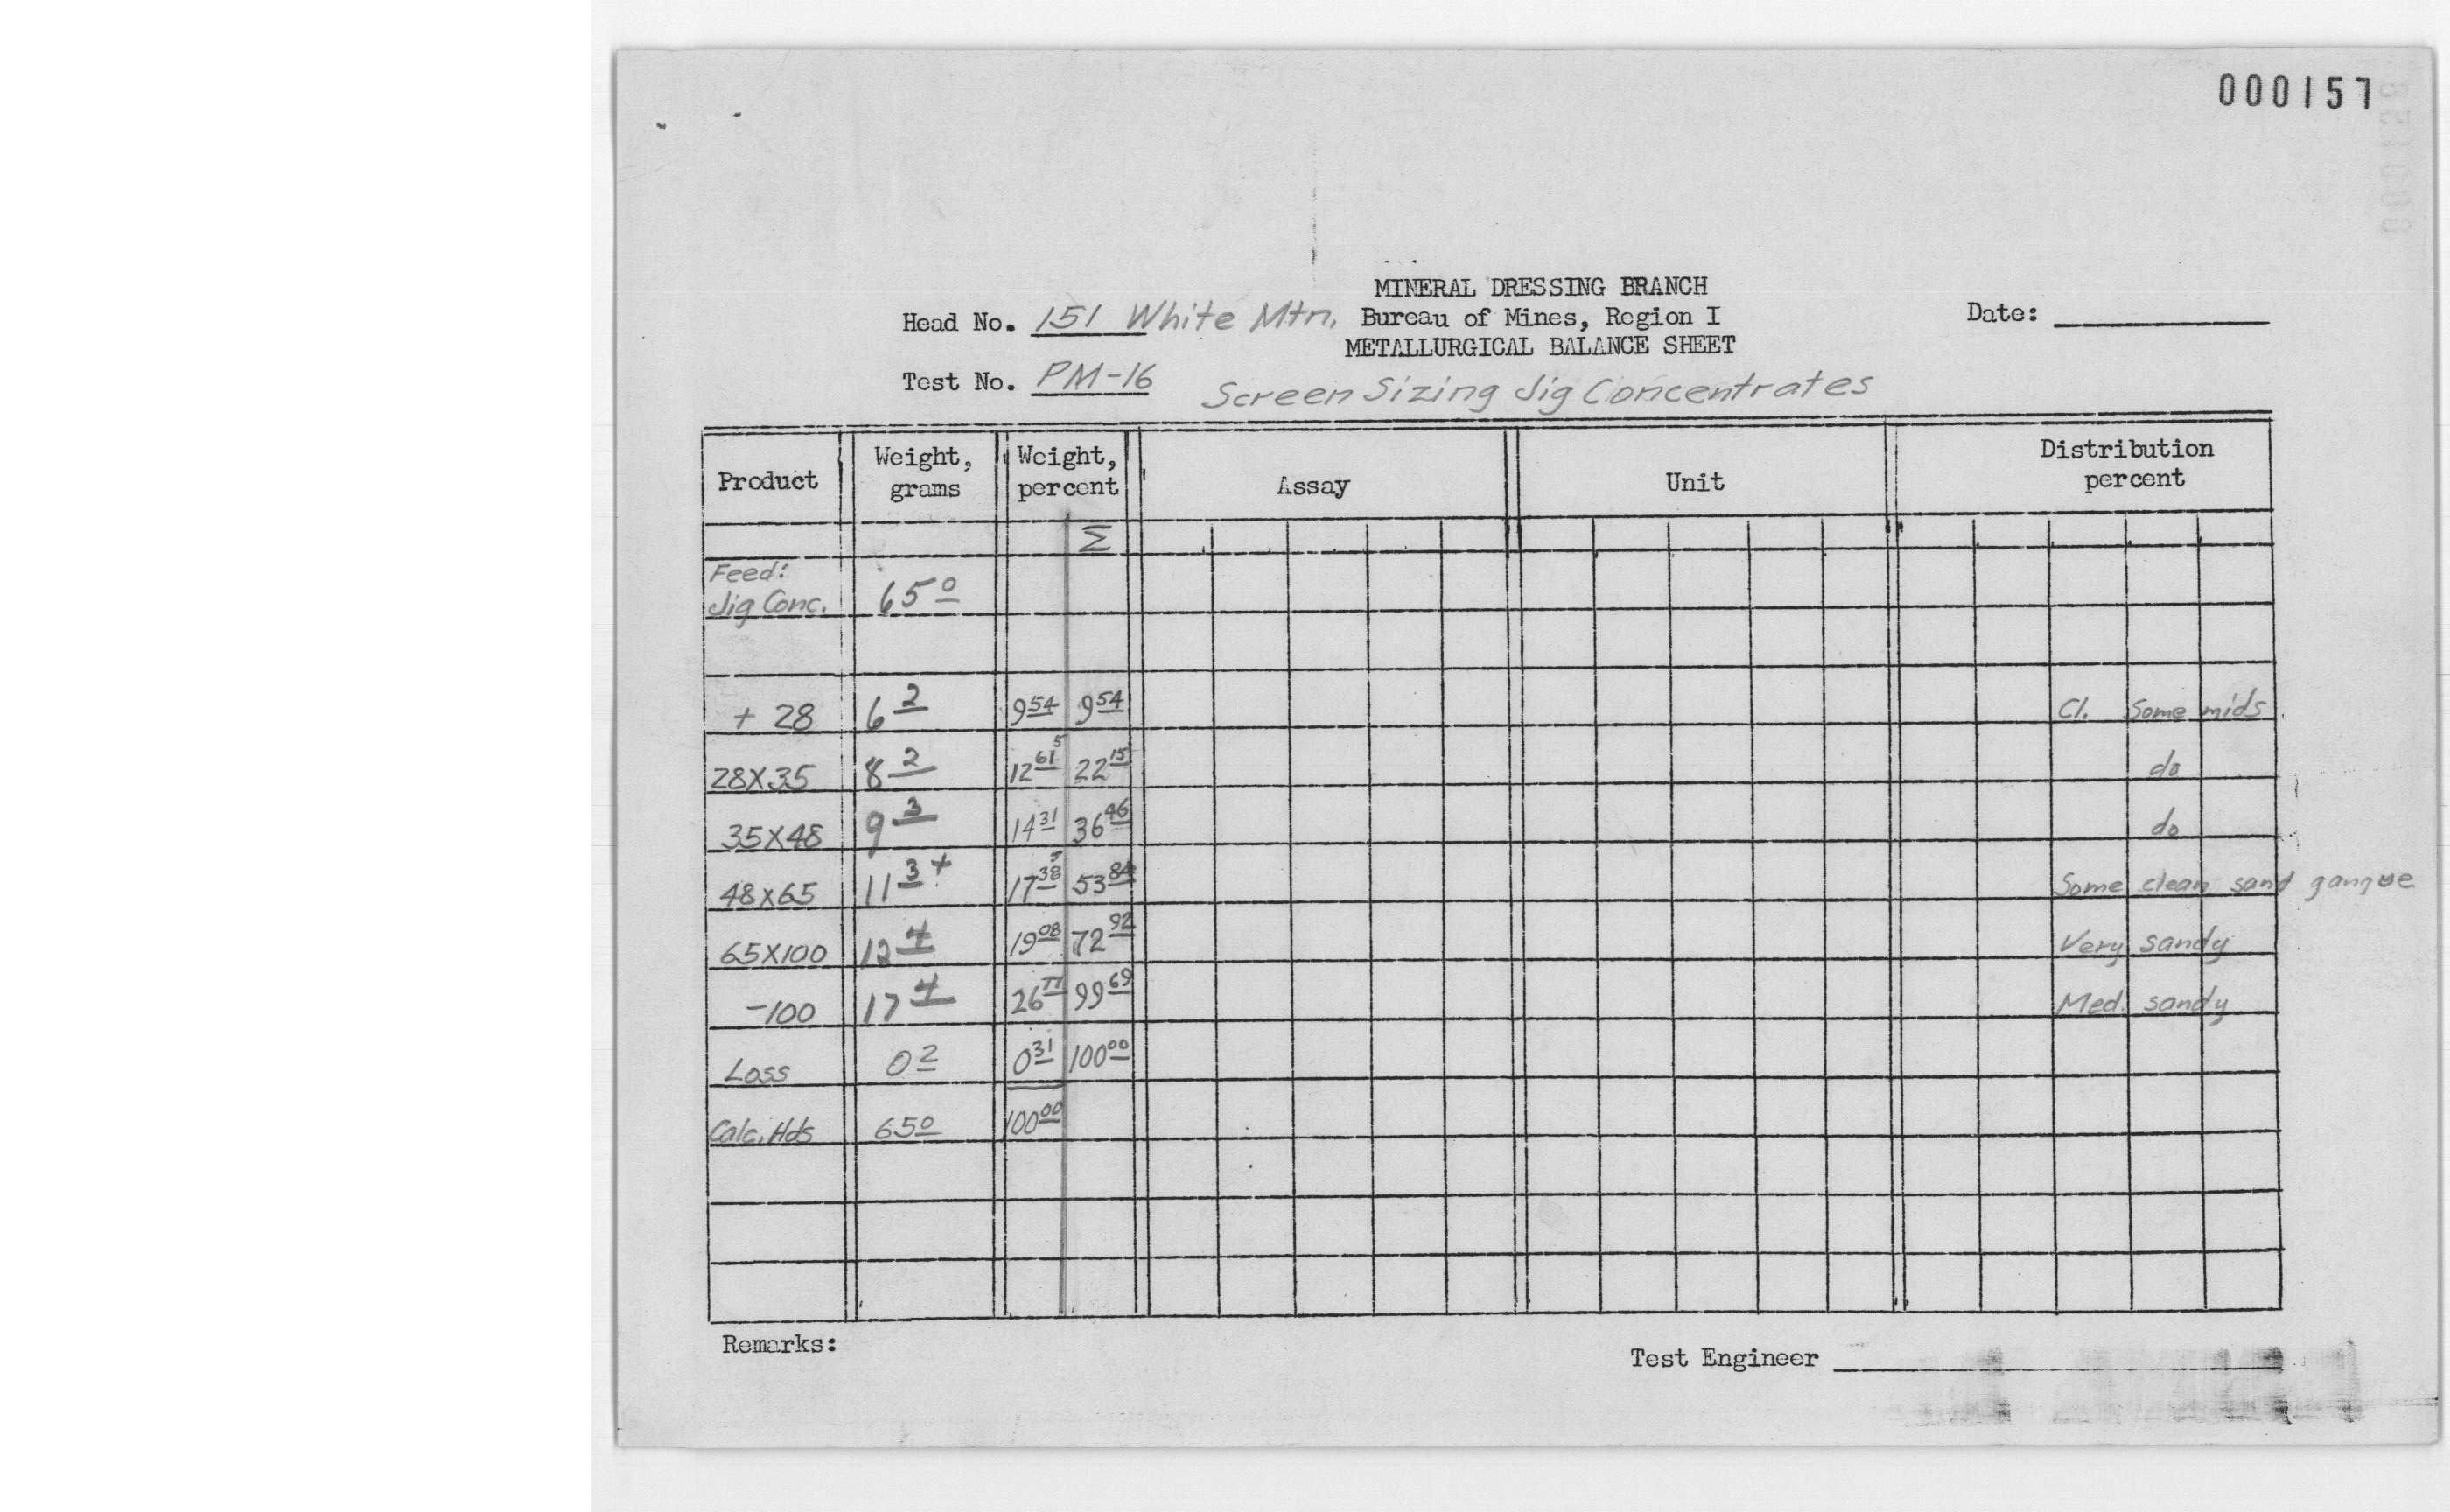 000157
MINERAL DRESSING BRANCH
Head No. 151 White Mtn. Bureau of Mines, Region I Date:
METALLURGICAL BALANCE SHEET
Test No. PM-16 Screen Sizing Jig Concentrates
Product Weight, grams Weight, percent Assay Unit Distribution percent
Σ
Feed:
Jig Conc. 65 0
+ 28 6 2 9 54 9 54 Cl. Some mids.
28X35 8 2 12 61 5 22 15 do
35X48 9 3 14 31 36 46 do
48X65 11 3 + 17 38 5 53 84 Some clean sand gangue
65X100 12 4 19 08 72 92 Very sandy
-100 17 4 26 77 99 69 Med. sandy
Loss 0 2 0 31 100 00
Calc. Hds 65 0 100 00
Remarks:
Test Engineer